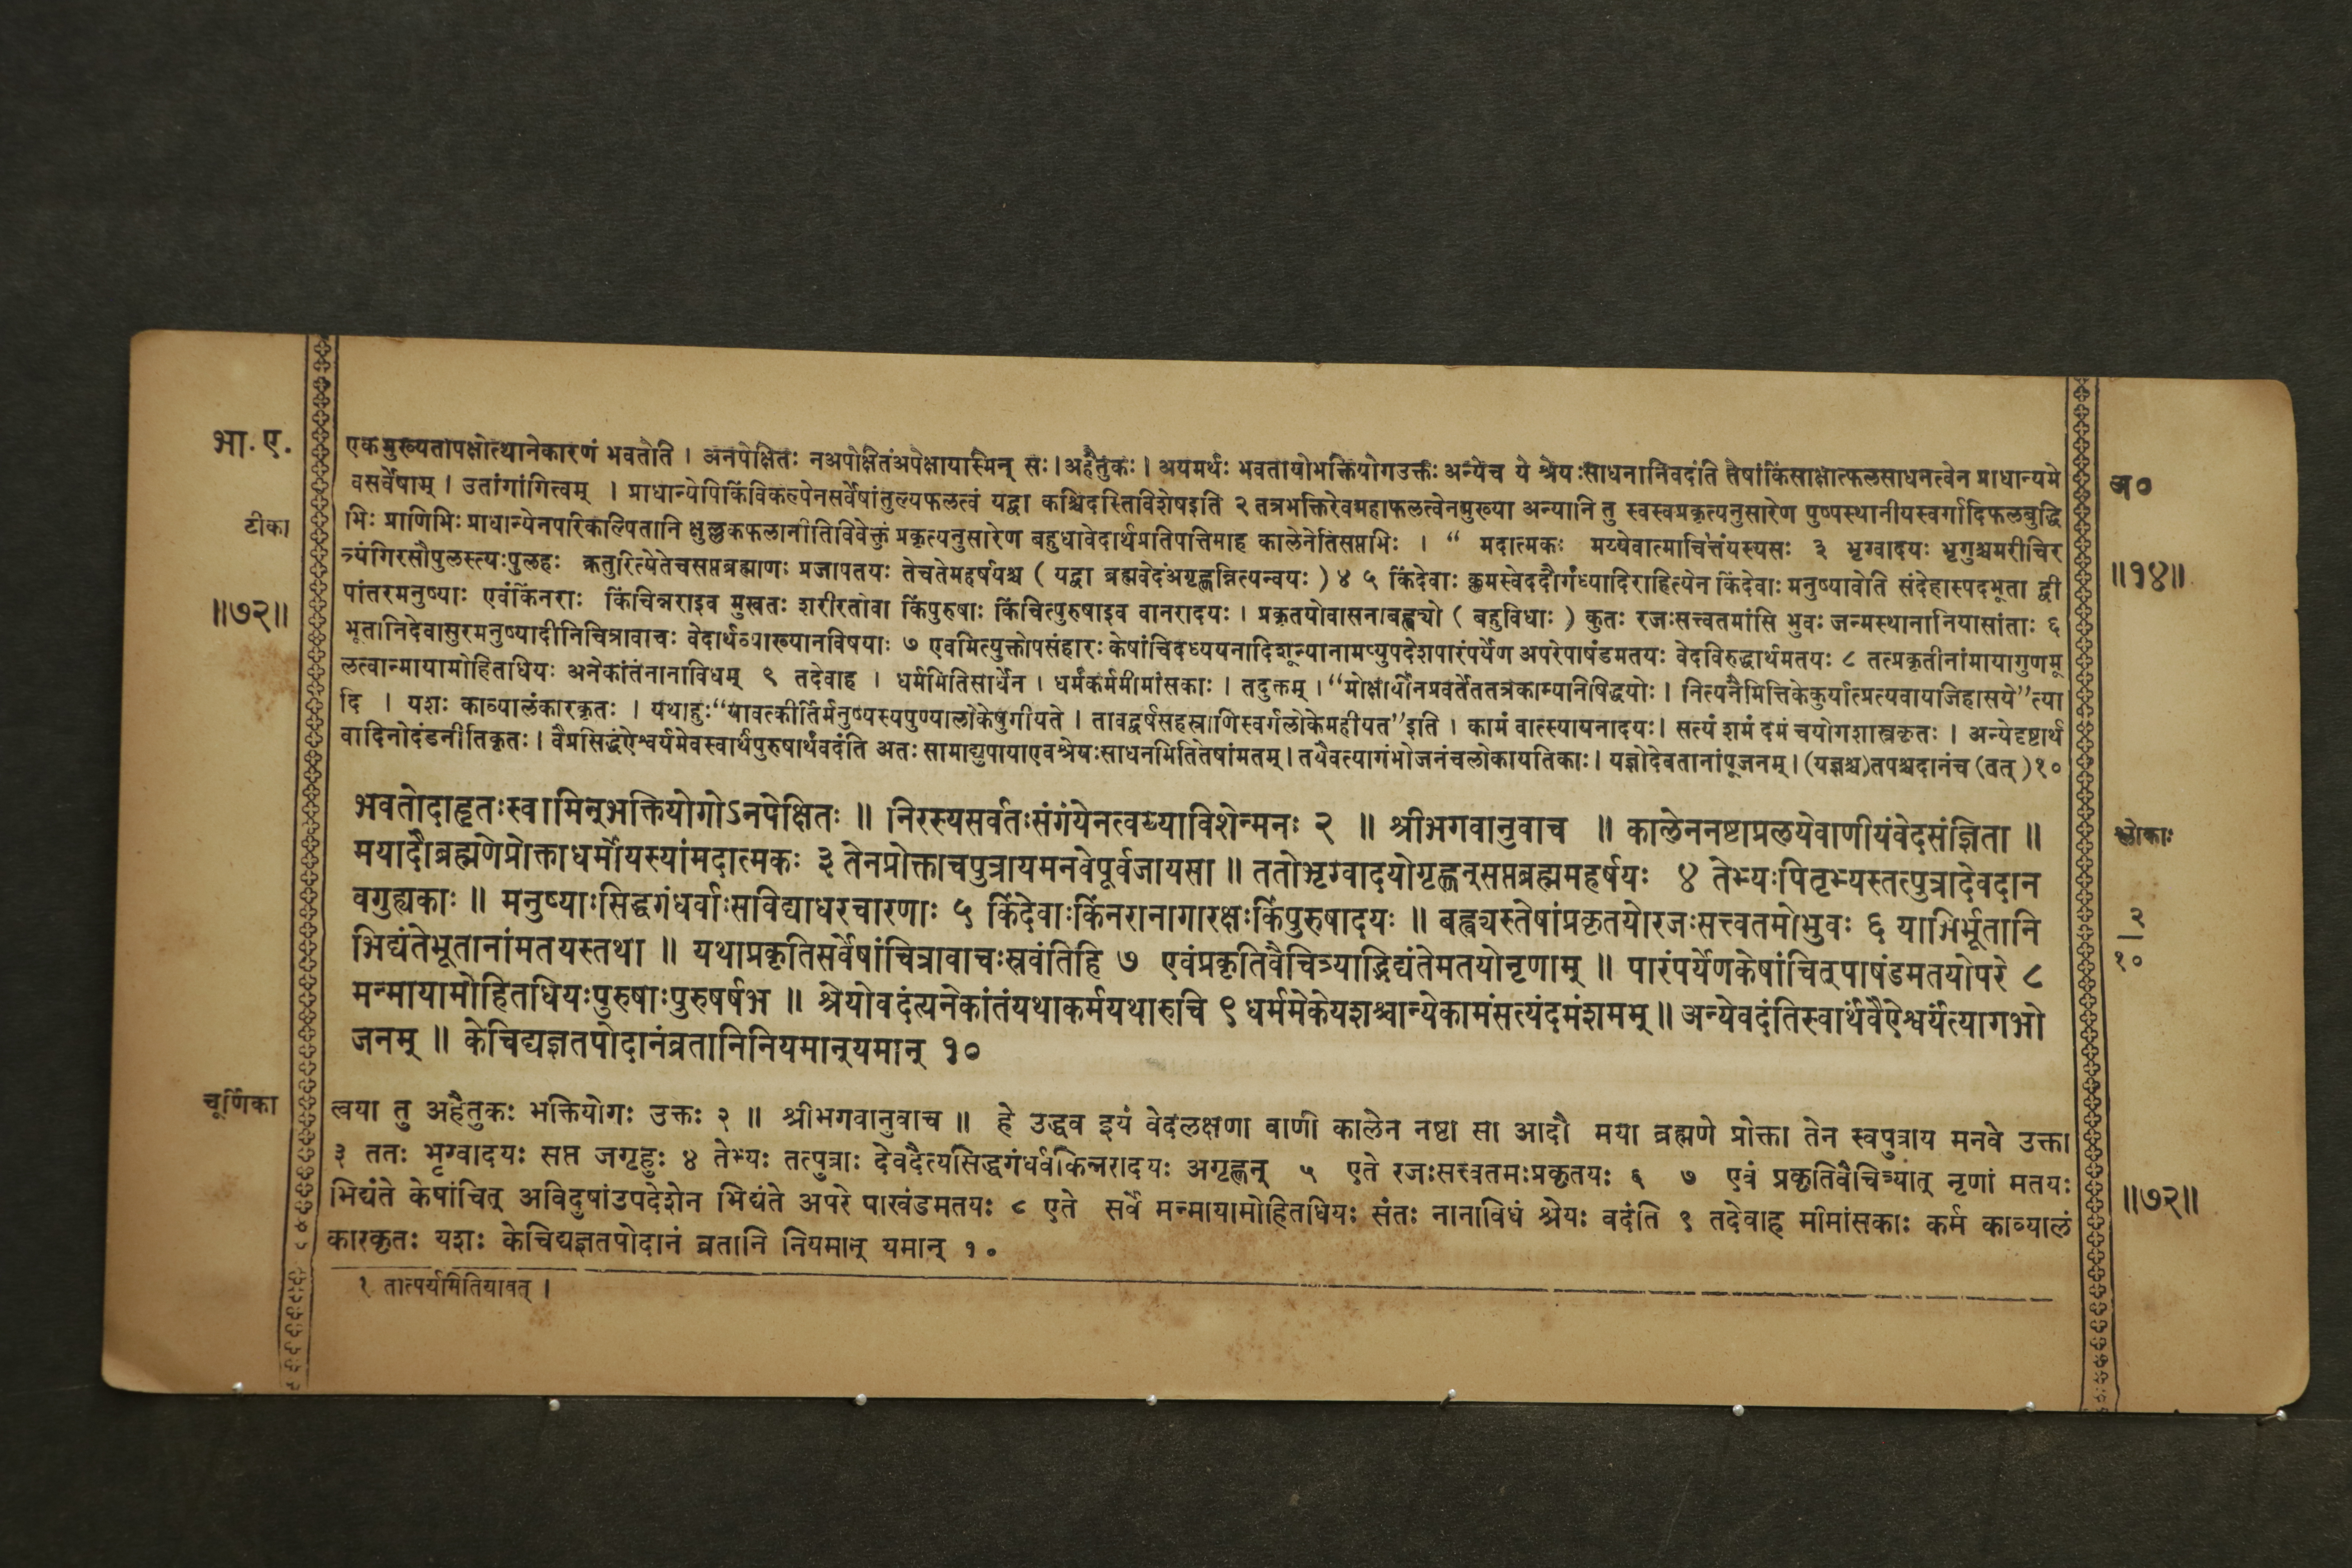 भा. ए.
एकमुख्यतापक्षोत्थानेकारणं भवतीति । अनपेक्षितः नअपोक्षितंअपेक्षायास्मिन् सः। अहैतुकः। अयमर्थः भवतायोभक्तियोगउक्तः अन्येच ये श्रेयःसाधनानिवदंति तेषांकिंसाक्षात्फलसाधनत्वेन प्राधान्यमे
वसर्वेषाम् । उतांगांगित्वम् । प्राधान्येपिकिंविकल्पेनसर्वेषांतुल्यफलत्वं यद्वा कश्चिदस्तिविशेषइति २ तत्रभक्तिरेवमहाफलत्वेनमुख्या अन्यानि तु स्वस्वप्रकृत्यनुसारेण पुष्पस्थानीयस्वर्गादिफलबुद्धि
भिः प्राणिभिः प्राधान्येनपरिकल्पितानि क्षुल्लकफलानीतिविवेक्तुं प्रकृत्यनुसारेण बहुधावेदार्थप्रतिपत्तिमाह कालेनेतिसप्तभिः । “ मदात्मकः मय्येवात्माचित्तंयस्यसः ३ भृग्वादयः भृगुश्चमरीचिर
त्र्यंगिरसौपुलस्त्यःपुलहः क्रतुरित्येतेचसप्तब्रह्माणः प्रजापतयः तेचतेमहर्षयश्च ( यद्वा ब्रह्मवेदंअगृह्णन्नित्यन्वयः ) ४ ५ किंदेवाः क्लमस्वेददौर्गंध्यादिराहित्येन किंदेवाः मनुष्यावेति संदेहास्पदभूता द्वी
पांतरमनुष्याः एवंकिंनराः किंचिन्नराइव मुखतः शरीरतोवा किंपुरुषाः किंचित्पुरुषाइव वानरादयः । प्रकृतयोवासनाबह्व्यो ( बहुविधाः ) कुतः रजःसत्त्वतमांसि भुवः जन्मस्थानानियासांताः ६
भूतानिदेवासुरमनुष्यादीनिचित्रावाचः वेदार्थव्याख्यानविषयाः ७ एवमित्युक्तोपसंहारः केषांचिदध्ययनादिशून्यानामप्युपदेशपारंपर्येण अपरेपाषंडमतयः वेदविरुद्धार्थमतयः ८ तत्प्रकृतीनांमायागुणमू
लत्वान्मायामोहितधियः अनेकांतंनानाविधम् ९ तदेवाह । धर्ममितिसार्धेन । धर्मंकर्ममीमांसकाः । तदुक्तम् । “मोक्षार्थीनप्रवर्तेततत्रकाम्यनिषिद्धयोः । नित्यनैमित्तिकेकुर्यात्प्रत्यवायजिहासये”त्या
दि । यशः काव्यालंकारकृतः । यथाहुः“यावत्कीर्तिर्मनुष्यस्यपुण्यालोकेषुगीयते । तावद्वर्षसहस्राणिस्वर्गलोकेमहीयत”इति । कामं वात्स्यायनादयः। सत्यं शमं दमं चयोगशास्त्रकृतः । अन्येदृष्टार्थ
वादिनोदंडनीतिकृतः । वैप्रसिद्धंऐश्वर्यमेवस्वार्थंपुरुषार्थंवदंति अतः सामाद्युपायाएवश्रेयःसाधनमितितेषांमतम्। तथैवत्यागंभोजनंचलोकायतिकाः। यज्ञोदेवतानांपूजनम्। (यज्ञश्च)तपश्चदानंच (वत् )१०
टीका
॥७२॥
अ०
॥१४॥
भवतोदाहृतःस्वामिन्भक्तियोगोऽनपेक्षितः ॥ निरस्यसर्वतःसंगंयेनत्वय्याविशेन्मनः २ ॥ श्रीभगवानुवाच ॥ कालेननष्टाप्रलयेवाणीयंवेदसंज्ञिता ॥
मयादौब्रह्मणेप्रोक्ताधर्मोयस्यांमदात्मकः ३ तेनप्रोक्ताचपुत्रायमनवेपूर्वजायसा ॥ ततोभृग्वादयोगृह्णन्सप्तब्रह्ममहर्षयः ४ तेभ्यःपितृभ्यस्तत्पुत्रादेवदान
वगुह्यकाः ॥ मनुष्याःसिद्धगंधर्वाःसविद्याधरचारणाः ५ किंदेवाःकिंनरानागारक्षःकिंपुरुषादयः ॥ बह्व्यस्तेषांप्रकृतयोरजःसत्त्वतमोभुवः ६ याभिर्भूतानि
भिद्यंतेभूतानांमतयस्तथा ॥ यथाप्रकृतिसर्वेषांचित्रावाचःस्रवंतिहि ७ एवंप्रकृतिवैचित्र्याद्भिद्यंतेमतयोनृणाम् ॥ पारंपर्येणकेषांचित्पाषंडमतयोपरे ८
मन्मायामोहितधियःपुरुषाःपुरुषर्षभ ॥ श्रेयोवदंत्यनेकांतंयथाकर्मयथारुचि ९ धर्ममेकेयशश्चान्येकामंसत्यंदमंशमम् ॥ अन्येवदंतिस्वार्थंवैऐश्वर्यंत्यागभो
जनम् ॥ केचिद्यज्ञतपोदानंव्रतानिनियमान्यमान् १०
श्लोकाः
२
१०
चूर्णिका
त्वया तु अहैतुकः भक्तियोगः उक्तः २ ॥ श्रीभगवानुवाच ॥ हे उद्धव इयं वेदलक्षणा वाणी कालेन नष्टा सा आदौ मया ब्रह्मणे प्रोक्ता तेन स्वपुत्राय मनवे उक्ता
३ ततः भृग्वादयः सप्त जगृहुः ४ तेभ्यः तत्पुत्राः देवदैत्यसिद्धगंधर्वकिन्नरादयः अगृह्णन् ५ एते रजःसत्त्वतमःप्रकृतयः ६ ७ एवं प्रकृतिवैचित्र्यात् नृणां मतयः
भिद्यंते केषांचित् अविदुषांउपदेशेन भिद्यंते अपरे पाखंडमतयः ८ एते सर्वे मन्मायामोहितधियः संतः नानाविधं श्रेयः वदंति ९ तदेवाह मीमांसकाः कर्म काव्यालं
कारकृतः यशः केचिद्यज्ञतपोदानं व्रतानि नियमान् यमान् १०
॥७२॥
१ तात्पर्यमितियावत् ।